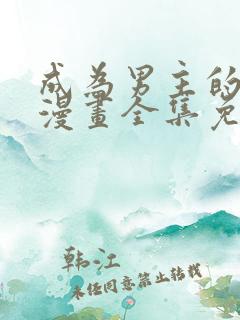 成为男主的
漫畫全集免
韩江
未经同意禁止转载